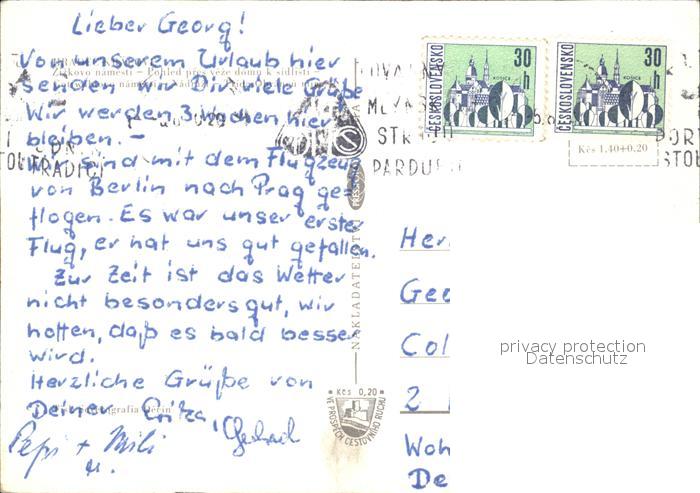 Lieber Georg!
Von unserem Urlaub hier
senden wir Dir viele Grüße
Wir werden 3 Wochen hier
bleiben. –
Wir sind mit dem Flugzeug
von Berlin nach Prag ge-
flogen. Es war unser erster
Flug, er hat uns gut gefallen.
Zur Zeit ist das Wetter
nicht besonders gut, wir
hoffen, daß es bald besser
wird.
Herzliche Grüße von
Deiner
Pepi + Mili
u.
Žižkovo náměstí – Pohled přes věže domu k sídlišti –
NAKLADATELSTVÍ
PRESSFOTO
Kčs 0,20
VE PROSPĚCH CESTOVNÍHO RUCHU
ČESKOSLOVENSKO
30 h
KOŠICE
ČESKOSLOVENSKO
30 h
KOŠICE
Kčs 1,40+0,20
PARDU
TRADICÍ
Her
Geo
Col
2
Woh
De
privacy protection
Datenschutz